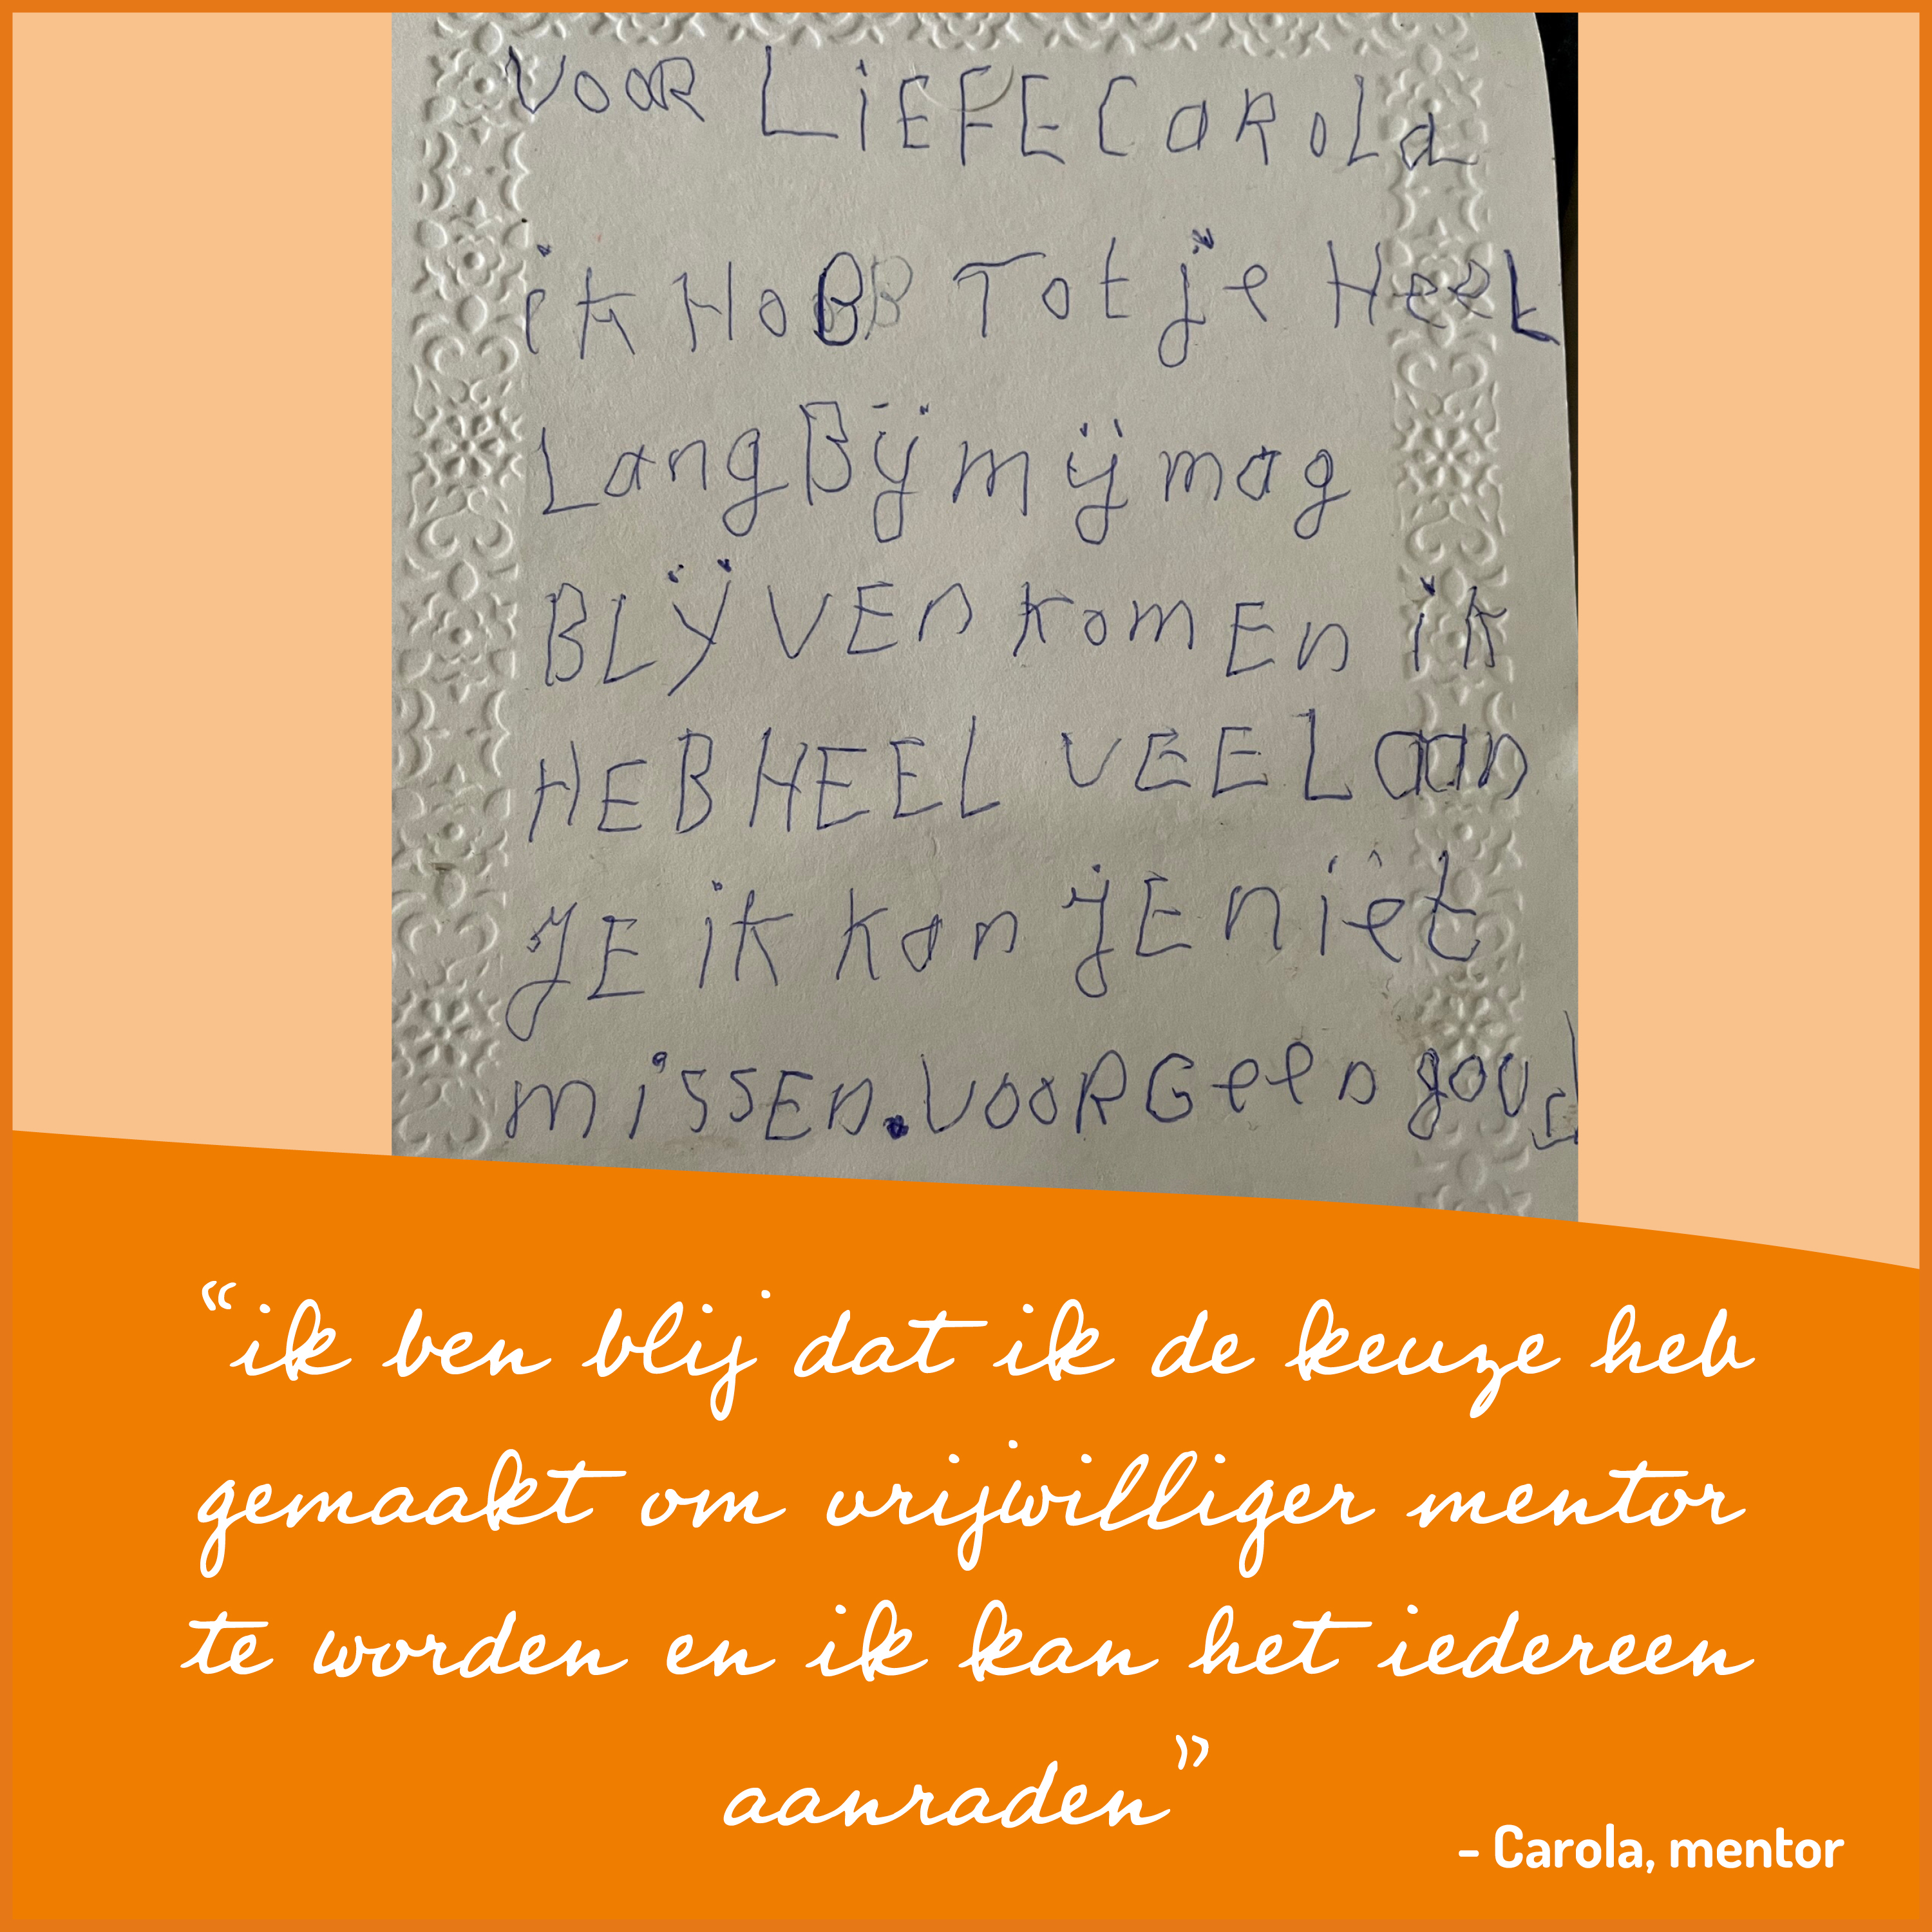 VOOR LiEFE CaRoLa
ik HoBB Tot je HeeL
Lang Bij mij mag
BLijVEn komEn ik
HEB HEEL VEEL aan
jE ik kan jE niet
missEn. VooR Geen goud
“ik ben blij dat ik de keuze heb
gemaakt om vrijwilliger mentor
te worden en ik kan het iedereen
aanraden”
- Carola, mentor